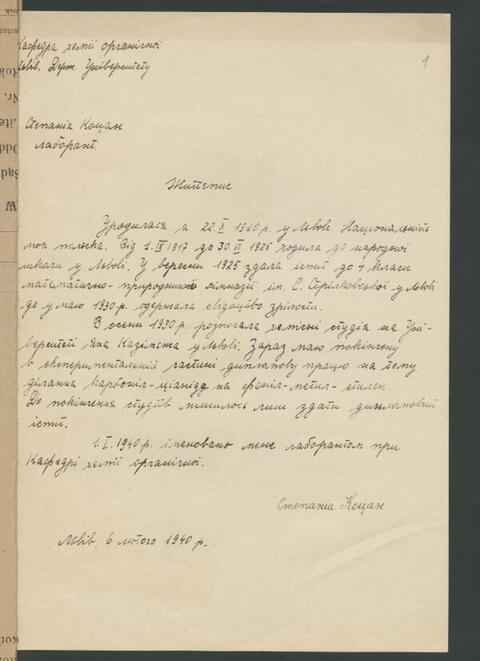 Кафедра хемії органічної
Львів. Держ. Університету
1
Степанія Коцан
лаборант.
Життєпис
Уродилася я 22.I 1910 р. у Львові Національність
моя польська. Від 1.IX 1917 до 30.VI 1925 ходила до народної
школи у Львові. У вересни 1925 здала іспіт до 4 класи
математично-природничої гімназії ім. С. Стрілковської у Львові
де у маю 1930 р. одержала свідоцтво зрілости.
В осени 1930 р. розпочала хемічні студія на Уні-
верситеті Яна Казіміжа у Львові. Зараз маю покінчену
в експериментальній частині дипломову працю на тему
ділання карбоніл-ціанідд на феніл-метил-етилен.
До покінчення студів лишилось лиш здати дипломовий
іспіт.
1.I.1940 р. іменовано мене лаборантом при
Кафедрі хемії органічної.
Степанія Коцан
Львів, 6 лютого 1940 р.
Rok
Nr.
Lite
Odd
Sąd
W